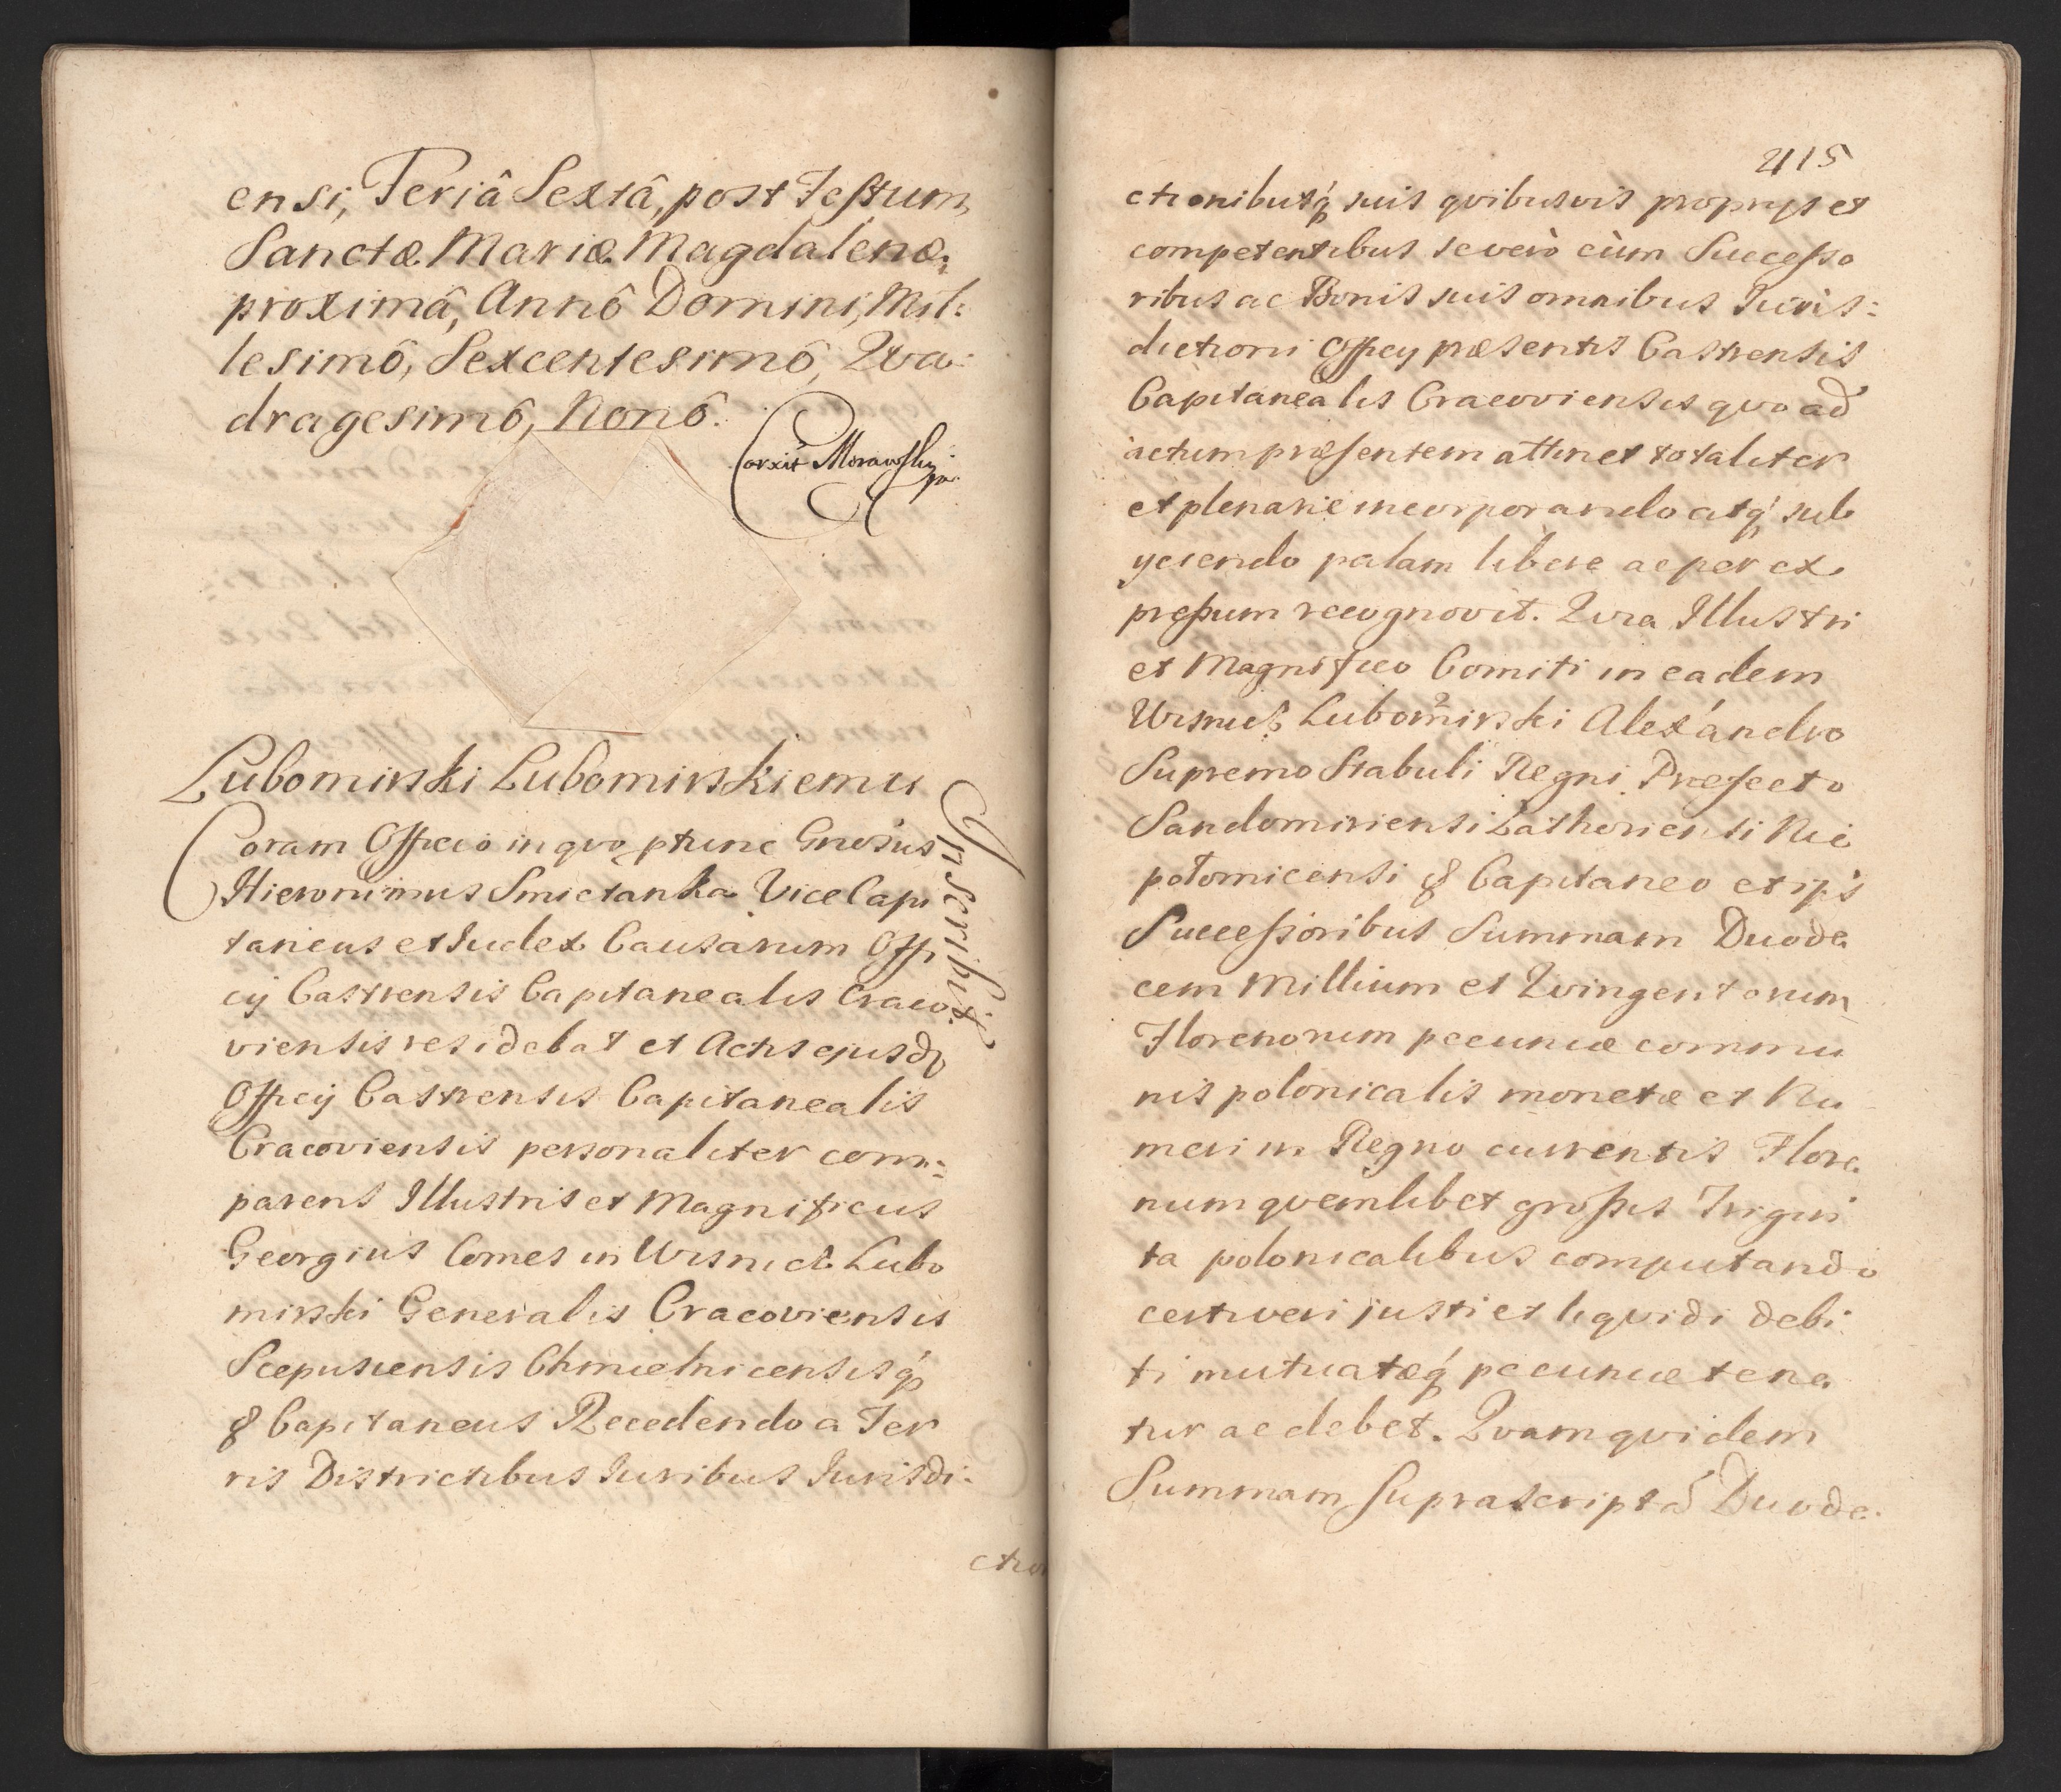 ensi, Feriâ Sextâ, post Festum
Sanctæ Mariæ Magdalenæ,
proximâ, Annô Domini, Mil:
lesimô, Sexcentesimô, Qva:
dragesimô, Nonô.
Corxit Morawsky
Lubomirski Lubomirskiemu
Inscribit
Coram Officio in qvo ptunc Gnosus
Hieronimus Smietanka Vice Capi
taneus et Iudex Causarum Offi
cij Castrensis Capitanealis Craco
viensis residebat et Actis ejusdq
Officij Castrensis Capitanealis
Cracoviensis personaliter com:
parens Illustris et Magnificus
Georgius Comes in Wisnicz Lubo
mirski Generalis Cracoviensis
Scepusiensis Chmielnicensisq́
& Capitaneus Recedendo a Ter
ris Districtibus Iuribus Iurisdi:
ction
415
ctionibusq́ suis qvibusvis proprijs et
competentibus se verò cùm Successo
ribus ac Bonis suis omnibus Iuris:
dictioni Officij præsentis Castrensis
Capitanealis Cracoviensis qvo ad
actum præsentem attinet totaliter
et plenarie incorporando atq́ sub
yciendo palam libere ac per ex
pressum recognovit. Qvia Illustri
et Magnifico Comiti in eadem
Wisnicz Lubomirski Alexándro
Supremo Stabuli Regni Præfecto
Sandomiriensi Zathoriensi Nie
potomicensi & Capitaneo et ips
Successoribus Summam Duode
cem Millium et Qvingentorum
Florenorum pecuniæ commu
nis polonicalis monetæ et Nu
meri in Regno currentis Flore
num qvemlibet grossis Trigin
ta polonicalibus computando
certi veri justi et liqvidi debi
ti mutuatæq́ pecuniæ tene
tur ac debet. Qvam qvidem
Summam suprascriptã Duode: